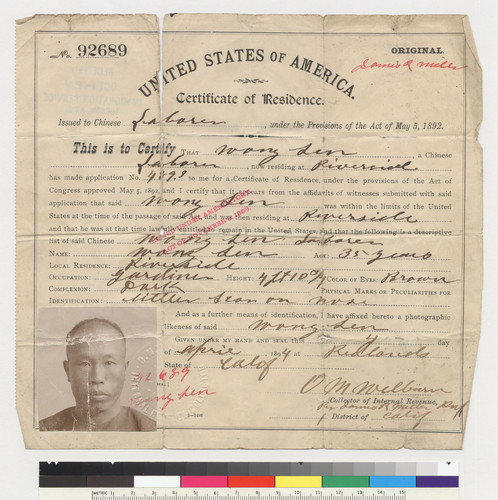 No. 92689
ORIGINAL.
UNITED STATES OF AMERICA.
Certificate of Residence.
Issued to Chinese Laborer, under the Provisions of the Act of May 5, 1892.
This is to Certify THAT Wong Sen a Chinese
Laborer now residing at Riverside
has made application No. 4893 to me for a Certificate of Residence, under the provisions of the Act of
Congress approved May 5, 1892, and I certify that it appears from the affidavits of witnesses submitted with said
application that said Wong Sen was within the limits of the United
States at the time of the passage of said Act, and was then residing at Riverside
and that he was at that time lawfully entitled to remain in the United States, and that the following is a descriptive
list of said Chinese Wong Sen Laborer
NAME: Wong Sen AGE: 35 years
LOCAL RESIDENCE: Riverside
OCCUPATION: Gardiner HEIGHT: 4 ft 10 3/4 COLOR OF EYES: Brown
COMPLEXION: Dark PHYSICAL MARKS OR PECULIARITIES FOR
IDENTIFICATION: Littler Scar on nose
And as a further means of identification, I have affixed hereto a photographic
likeness of said Wong Sen
GIVEN UNDER MY HAND AND SEAL this day
of April 1894, at Redlands
State of Calif
92689
Wong Sen
O M Welburn
Collector of Internal Revenue,
District of Calif
METRIC 1 2 3 4 5 6 7 8 9 10 11 12 13 14 15